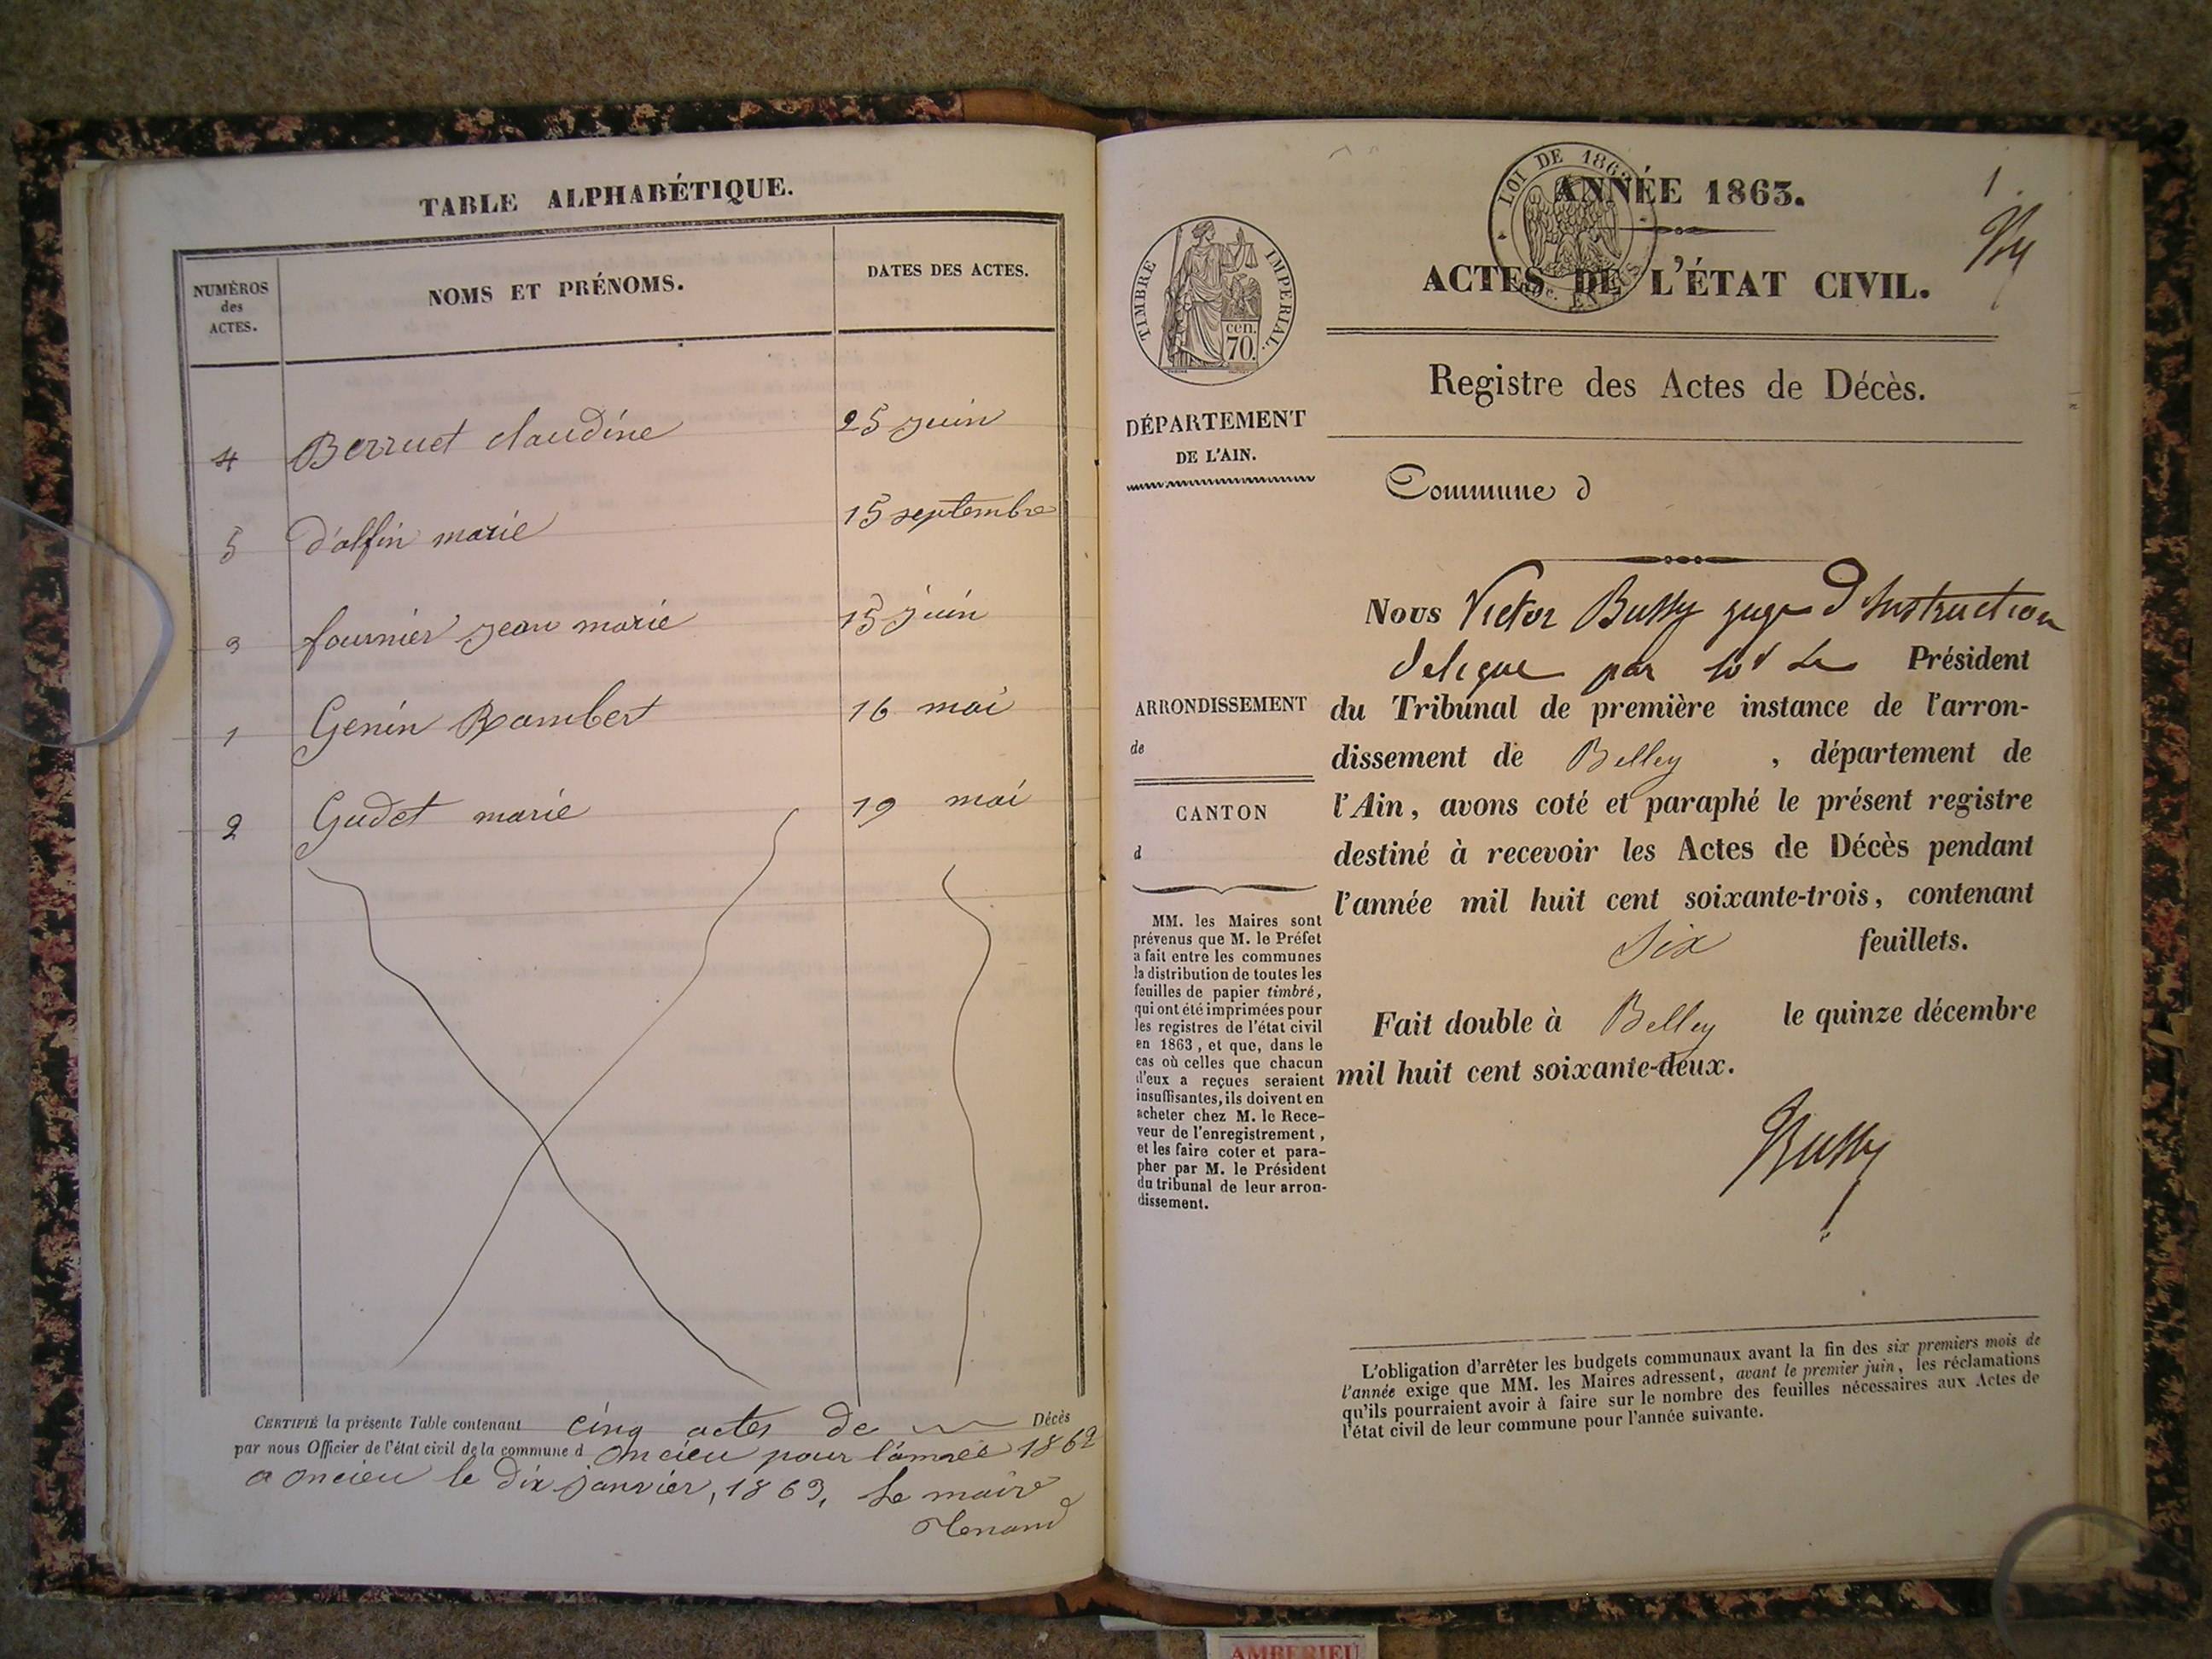 TABLE ALPHABÉTIQUE.
NUMÉROS
des
ACTES.
NOMS ET PRÉNOMS.
DATES DES ACTES.
4 Berruet claudine 25 juin
5 d'alfin marie 15 septembre
3 fournier jean marie 15 juin
1 Genin Rambert 16 mai
2 Gudet marie 19 mai
CERTIFIÉ la présente Table contenant cinq actes de Décès
par nous Officier de l'état civil de la commune d oncieu pour l'année 1862
a oncieu le dix janvier, 1863, Le maire
1.
LOI DE 1862
ANNÉE 1863.
ACTES DE L'ÉTAT CIVIL.
TIMBRE IMPERIAL.
cen.
70.
Registre des Actes de Décès.
DÉPARTEMENT
DE L'AIN.
Commune d
Nous Victor Bussy juge d'Instruction
delegue par Le Président
du Tribunal de première instance de l'arron-
dissement de Belley , département de
l'Ain, avons coté et paraphé le présent registre
destiné à recevoir les Actes de Décès pendant
l'année mil huit cent soixante-trois, contenant
six feuillets.
Fait double à Belley le quinze décembre
mil huit cent soixante-deux.
Bussy
ARRONDISSEMENT
de
CANTON
d
MM. les Maires sont
prévenus que M. le Préfet
a fait entre les communes
la distribution de toutes les
feuilles de papier timbré,
qui ont été imprimées pour
les registres de l'état civil
en 1863, et que, dans le
cas où celles que chacun
d'eux a reçues seraient
insuffisantes, ils doivent en
acheter chez M. le Rece-
veur de l'enregistrement,
et les faire coter et para-
pher par M. le Président
du tribunal de leur arron-
dissement.
L'obligation d'arrêter les budgets communaux avant la fin des six premiers mois de
l'année exige que MM. les Maires adressent, avant le premier juin, les réclamations
qu'ils pourraient avoir à faire sur le nombre des feuilles nécessaires aux Actes de
l'état civil de leur commune pour l'année suivante.
AMBERIEU